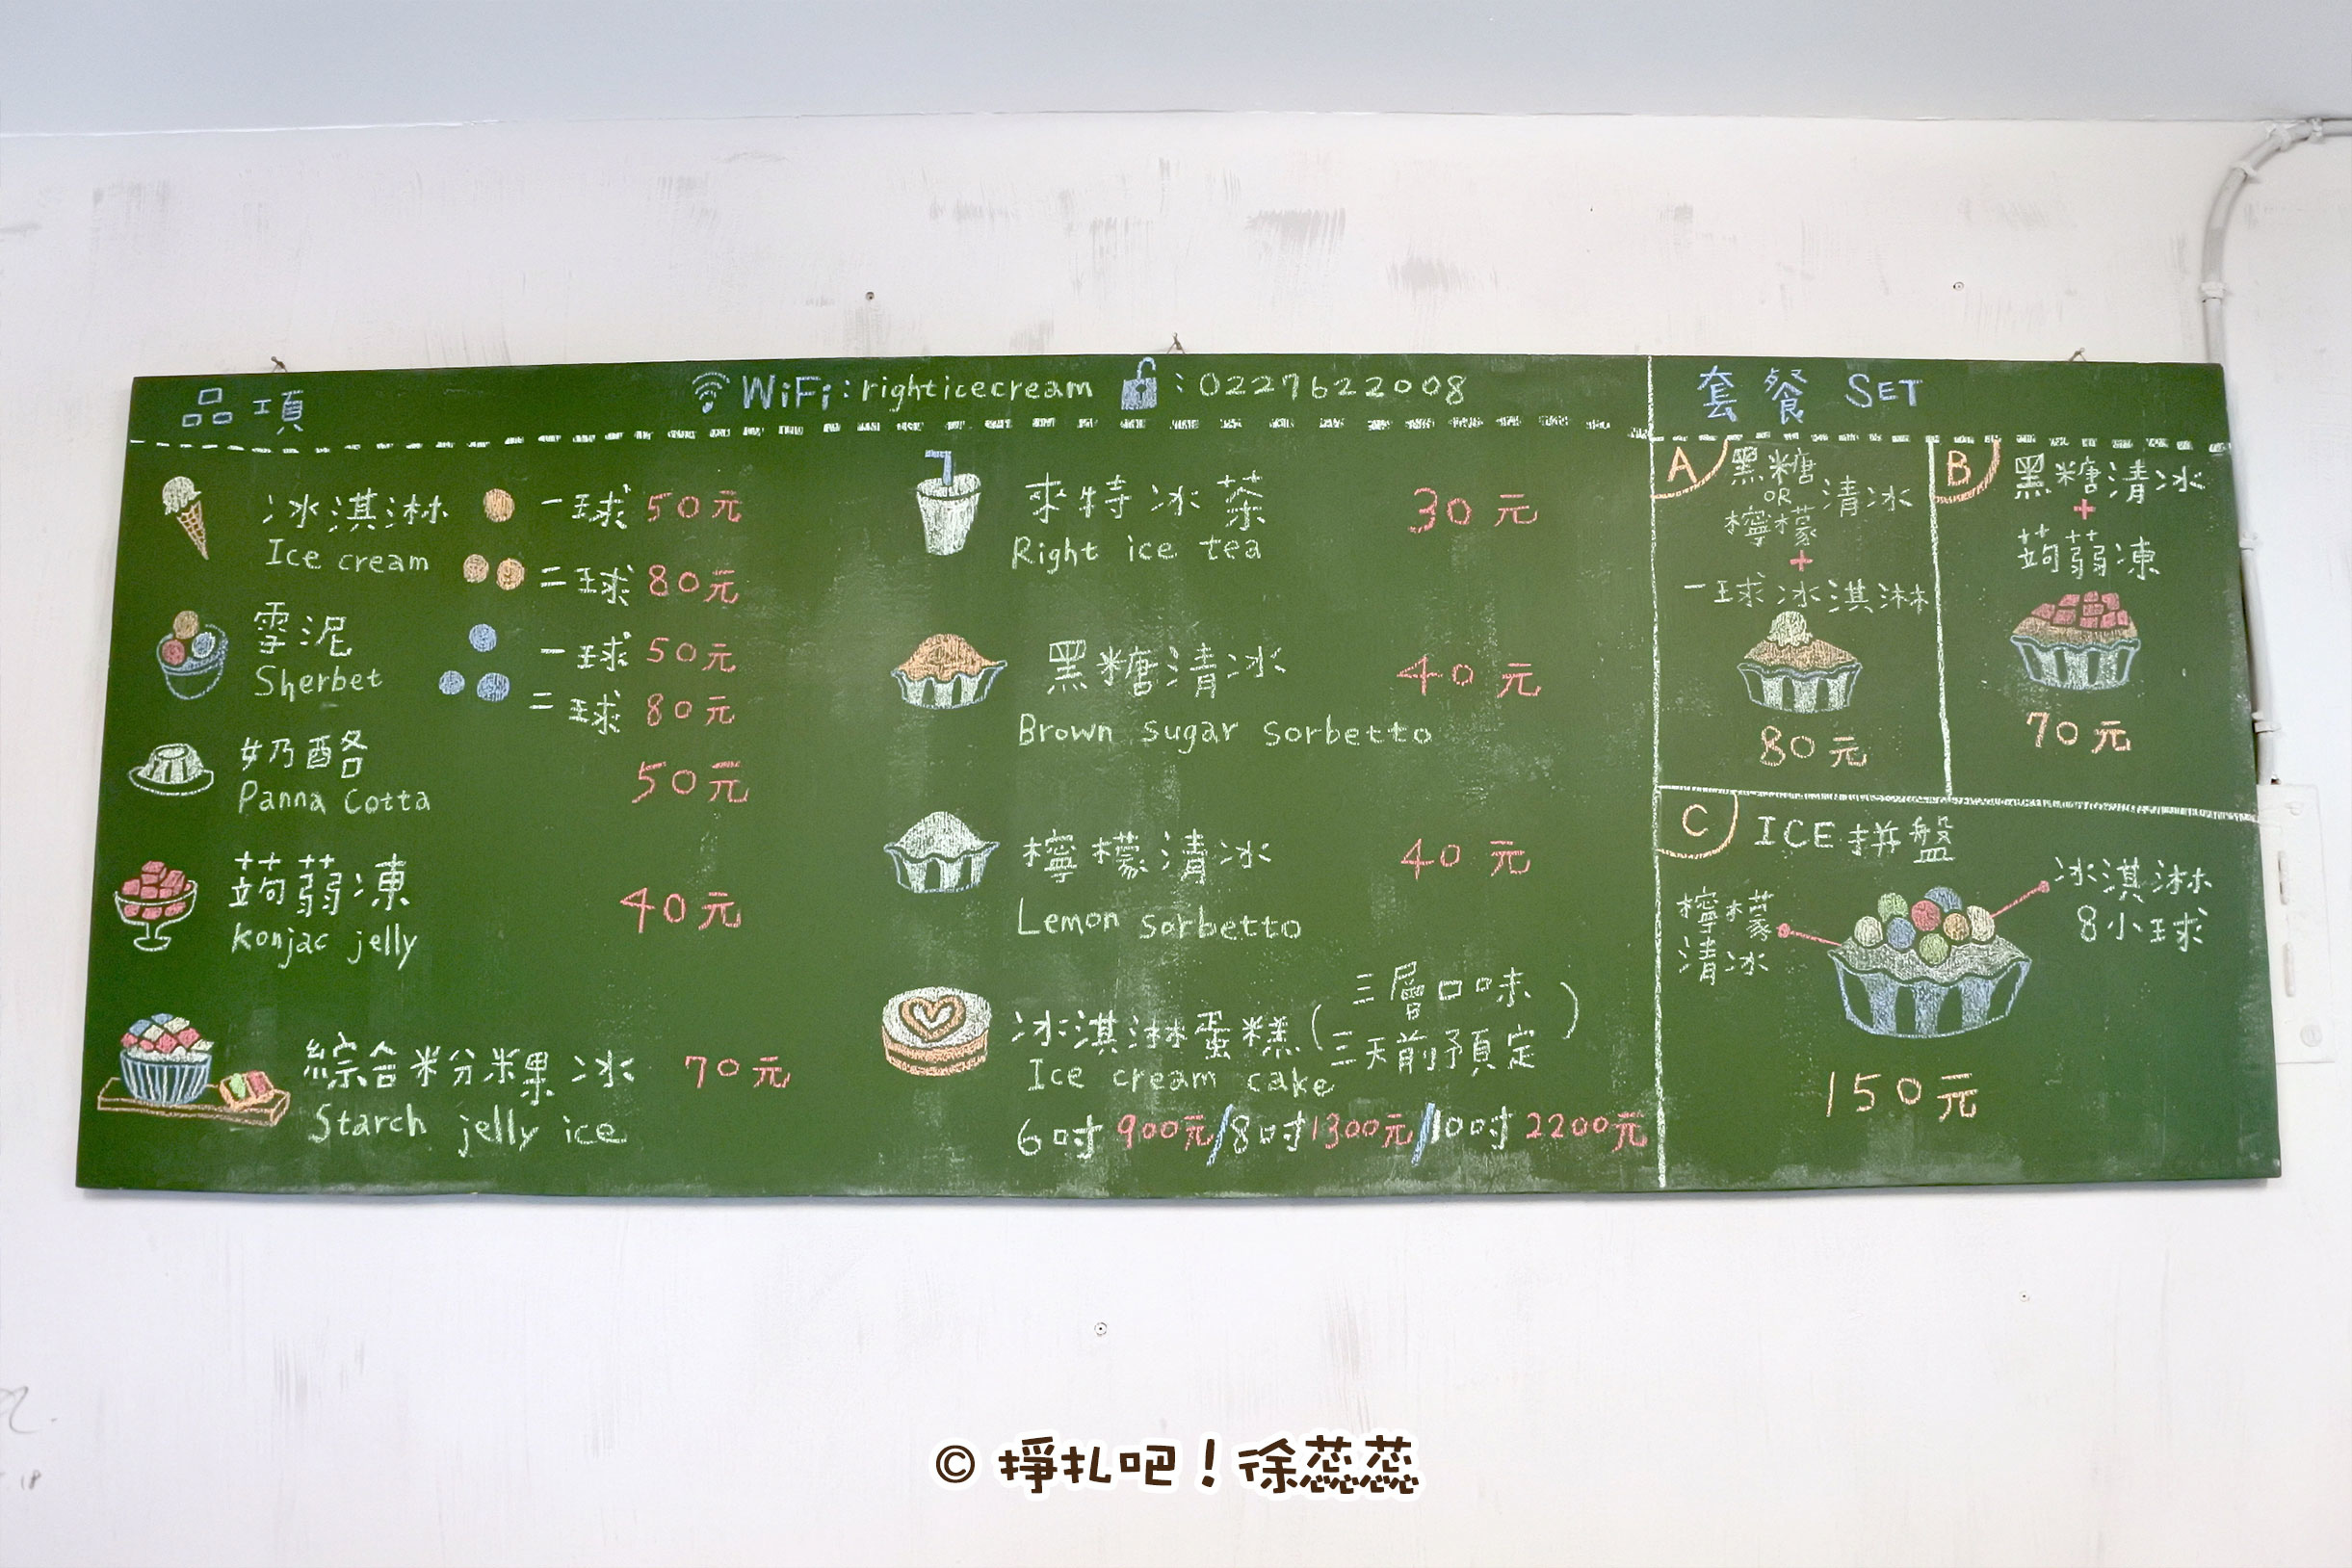 品項
WiFi:righticecream :0227622008
冰淇淋 一球 50元
Ice cream
二球 80元
雪泥 一球 50元
Sherbet
二球 80元
奶酪
Panna Cotta
50元
蒟蒻凍
konjac jelly
40元
綜合粉粿冰 70元
Starch jelly ice
來特冰茶 30元
Right ice tea
黑糖清冰 40元
Brown sugar sorbetto
檸檬清冰 40元
Lemon sorbetto
冰淇淋蛋糕(三層口味
三天前預定)
Ice cream cake
6吋900元/8吋1300元/10吋2200元
套餐 SET
A
黑糖
OR
檸檬
清冰
+
一球冰淇淋
80元
B
黑糖清冰
+
蒟蒻凍
70元
C
ICE拼盤
檸檬
清冰
冰淇淋
8小球
150元
© 掙扎吧！徐蕊蕊